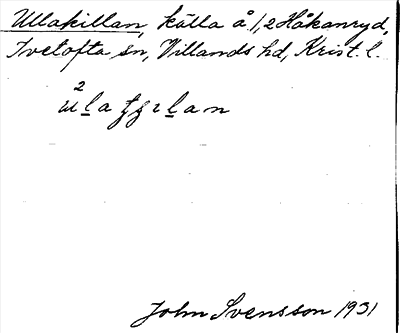 Ullakillan, källa å 1,2 Håkanryd,
Ivetofta sn, Villands hd, Krist. l.
John Svensson 1931